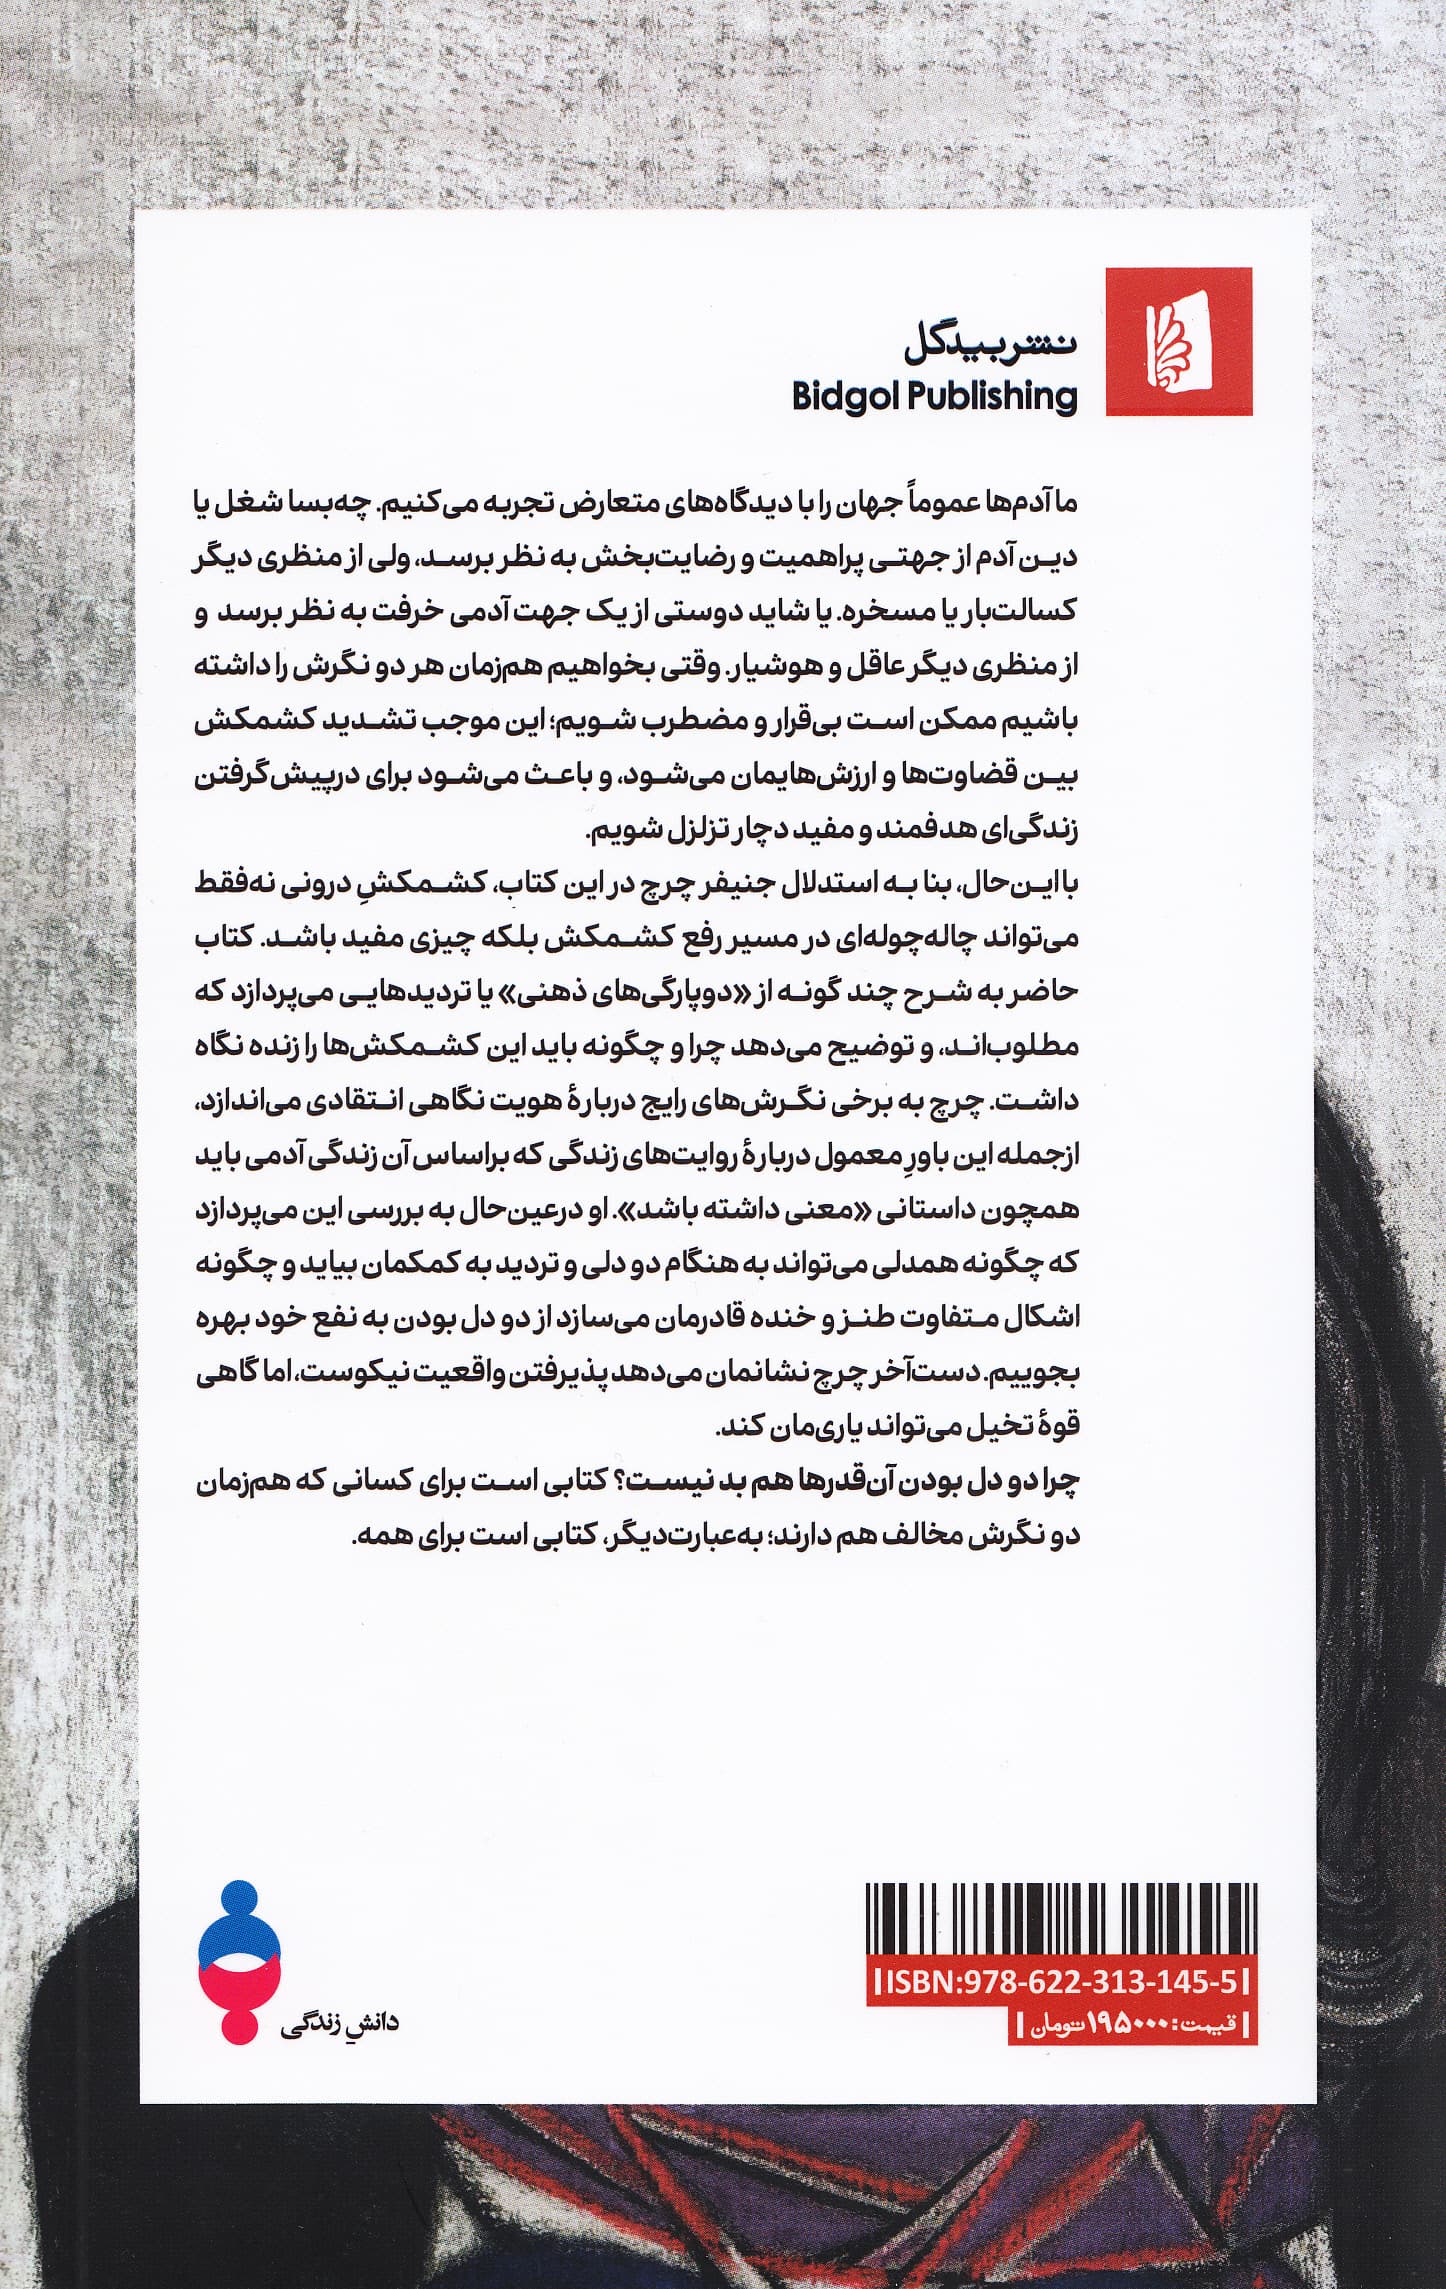 نشر بیدگل
Bidgol Publishing
ما آدم‌ها عموماً جهان را با دیدگاه‌های متعارض تجربه می‌کنیم. چه‌بسا شغل یا
دین آدم از جهتی پراهمیت و رضایت‌بخش به نظر برسد، ولی از منظری دیگر
کسالت‌بار یا مسخره. یا شاید دوستی از یک جهت آدمی خرفت به نظر برسد و
از منظری دیگر عاقل و هوشیار. وقتی بخواهیم هم‌زمان هر دو نگرش را داشته
باشیم ممکن است بی‌قرار و مضطرب شویم؛ این موجب تشدید کشمکش
بین قضاوت‌ها و ارزش‌هایمان می‌شود، و باعث می‌شود برای درپیش‌گرفتن
زندگی‌ای هدفمند و مفید دچار تزلزل شویم.
بااین‌حال، بنا به استدلال جنیفر چرچ در این کتاب، کشمکشِ درونی نه‌فقط
می‌تواند چاله‌چوله‌ای در مسیر رفع کشمکش بلکه چیزی مفید باشد. کتاب
حاضر به شرح چند گونه از «دوپارگی‌های ذهنی» یا تردیدهایی می‌پردازد که
مطلوب‌اند، و توضیح می‌دهد چرا و چگونه باید این کشمکش‌ها را زنده نگاه
داشت. چرچ به برخی نگرش‌های رایج دربارهٔ هویت نگاهی انتقادی می‌اندازد،
ازجمله این باورِ معمول دربارهٔ روایت‌های زندگی که براساس آن زندگی آدمی باید
همچون داستانی «معنی داشته باشد». او درعین‌حال به بررسی این می‌پردازد
که چگونه همدلی می‌تواند به هنگام دو دلی و تردید به کمکمان بیاید و چگونه
اشکال متفاوت طنز و خنده قادرمان می‌سازد از دو دل بودن به نفع خود بهره
بجوییم. دست‌آخر چرچ نشانمان می‌دهد پذیرفتن واقعیت نیکوست، اما گاهی
قوهٔ تخیل می‌تواند یاری‌مان کند.
چرا دو دل بودن آن‌قدرها هم بد نیست؟ کتابی است برای کسانی که هم‌زمان
دو نگرش مخالف هم دارند؛ به‌عبارت‌دیگر، کتابی است برای همه.
ISBN:978-622-313-145-5
قیمت: ۱۹۵۰۰۰ تومان
دانشِ زندگی